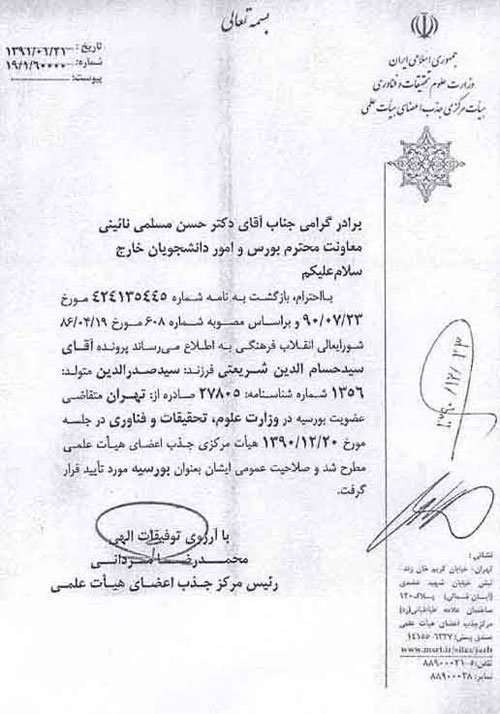 بسمه تعالی
جمهوری اسلامی ایران
وزارت علوم تحقیقات و فناوری
هیأت مرکزی جذب اعضای هیأت علمی
تاریخ:
شماره: ۱۹/۱/۶۰۰۰۰
پیوست:
برادر گرامی جناب آقای دکتر حسن مسلمی نائینی
معاونت محترم بورس و امور دانشجویان خارج
سلام‌علیکم
بااحترام، بازگشت به نامه شماره ۴۲۴۱۳۵۴۴۵ مورخ
۹۰/۰۷/۲۳ و براساس مصوبه شماره ۶۰۸ مورخ ۸۶/۰۴/۱۹
شورایعالی انقلاب فرهنگی به اطلاع می‌رساند پرونده آقای
سیدحسام الدین شریعتی فرزند: سیدصدرالدین متولد:
۱۳۵۶ شماره شناسنامه: ۲۷۸۰۵ صادره از: تهران متقاضی
عضویت بورسیه در وزارت علوم، تحقیقات و فناوری در جلسه
مورخ ۱۳۹۰/۱۲/۲۰ هیأت مرکزی جذب اعضای هیأت علمی
مطرح شد و صلاحیت عمومی ایشان بعنوان بورسیه مورد تأیید قرار
گرفت.
با آرزوی توفیقات الهی
محمدرضا مردانی
رئیس مرکز جذب اعضای هیأت علمی
نشانی:
تهران- خیابان کریم خان زند-
نبش خیابان شهید عضدی
(آبان شمالی) پلاک ۱۲۰
ساختمان علامه طباطبائی(ره)
مرکز جذب اعضای هیأت علمی
صندق پستی: ۱۴۱۵۵-۶۳۳۷
تلفن: ۵-۸۸۹۰۰۰۲۱
نمابر: ۸۸۹۰۰۰۲۸